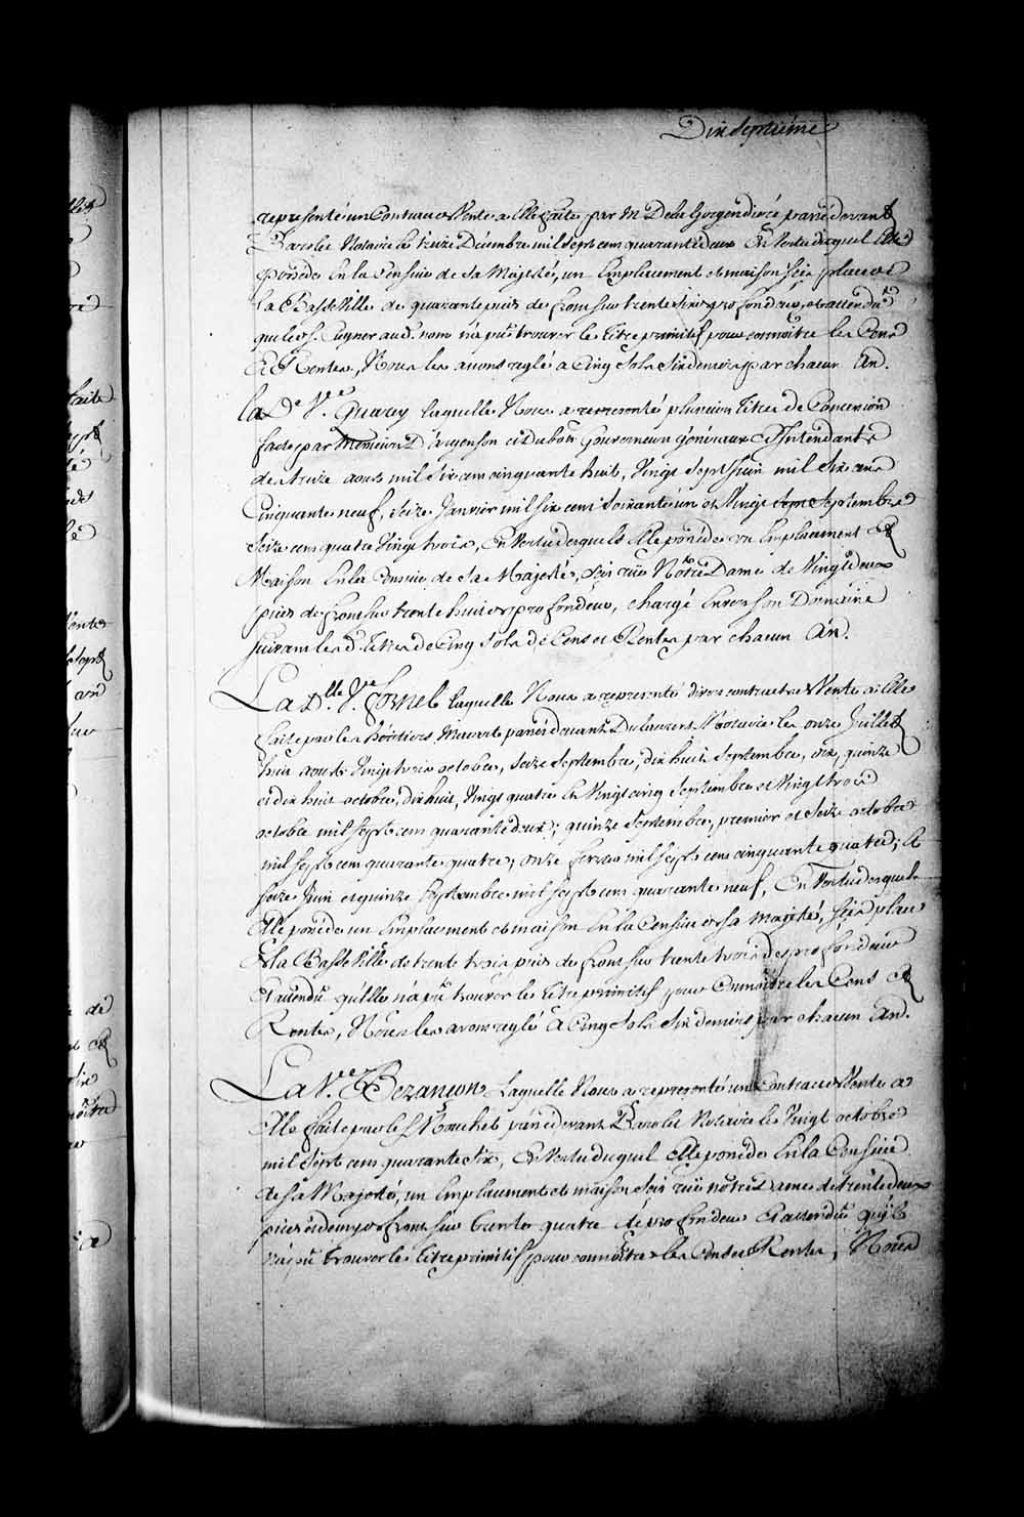 Dix Septieme
représenté un Contract de Vente a Elle faite par Mr. De la Gorgendiere passé devant
Barolet Notaire le treize Décembre mil sept cens quarante deux En Vertu duquel Elle
possede En la Censive de Sa Majesté, un Emplacement et maison scis place de
La Basse Ville de quarante pieds de front sur trente six de profondeur, et attendu
que led. S. Cugnet aud. nom n'a pû trouver le titre primitif pour connoître les Cens
Et Rentes, Nous les avons reglé a Cinq Sols Six deniers par chacun An.
La De. Ve. Guarey laquelle Nous a representé plusieurs titres de Concession
faite par Messieurs D'argenson et Dubois Gouverneurs généraux Et Intendant
de treize aoust mil Six cens cinquante huit, Vingt Sept Juin mil Six cens
Cinquante neuf, Seize Janvier mil six cens Soixante un et Vingt Sept Septembre
Seize cens quatre Vingt trois, En Vertu desquels Elle possede un Emplacement Et
Maison En la Censive de Sa Majesté, Scis rüe Notre Dame de Vingt deux
pieds de front sur trente huit de profondeur, chargé Envers Son Domaine
Suivant les d. titres de Cinq Sols De Cens et Rentes par chacun An.
La Dlle. Ve. Fornel laquelle Nous a representé divers contracts de Vente a Elle
faite par les héritiers passés devant Dulaurent Notaire les onze Juillet
huit aoust Vingt trois octobre, Seize Septembre, dix huit Septembre, dix, quinze
et dix huit octobre, dix huit, Vingt quatre Et Vingt cinq Septembre et Vingt trois
octobre mil sept cens quarante deux; quinze Septembre, premier et Seize octobre
mil sept cens quarante quatre; onze fevrier mil sept cens cinquante quatre; Et
Seize Juin et quinze Septembre mil sept cens quarante neuf, En Vertu desquels
Elle possede un Emplacement et maison En la Censive de Sa Majesté, Scis place
De la Basse Ville de trente trois pieds de front sur trente trois de profondeur
Et attendu qu'Elle n'a pû trouver le titre primitif pour Connoître les Cens Et
Rentes, Nous les avons reglé a Cinq Sols Six deniers par chacun An.
La Ve. Bezançon Laquelle Nous a representé un Contract de Vente a
Elle faite par le S. Mouchet passé devant Barolet Notaire le Vingt octobre
mil Sept cens quarante Six, En Vertu duquel Elle possede En la Censive
de Sa Majesté, un Emplacement et maison Scis rüe notre Dame de trente deux
pieds et demy de front sur trente quatre de profondeur Et attendu qu'elle
n'a pû trouver le titre primitif pour connoître les Cens et Rentes, Nous